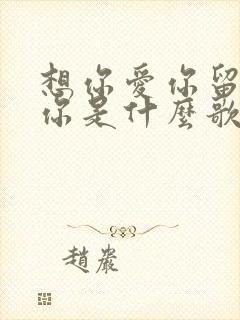 想你愛你留
你是什麼歌
趙巖